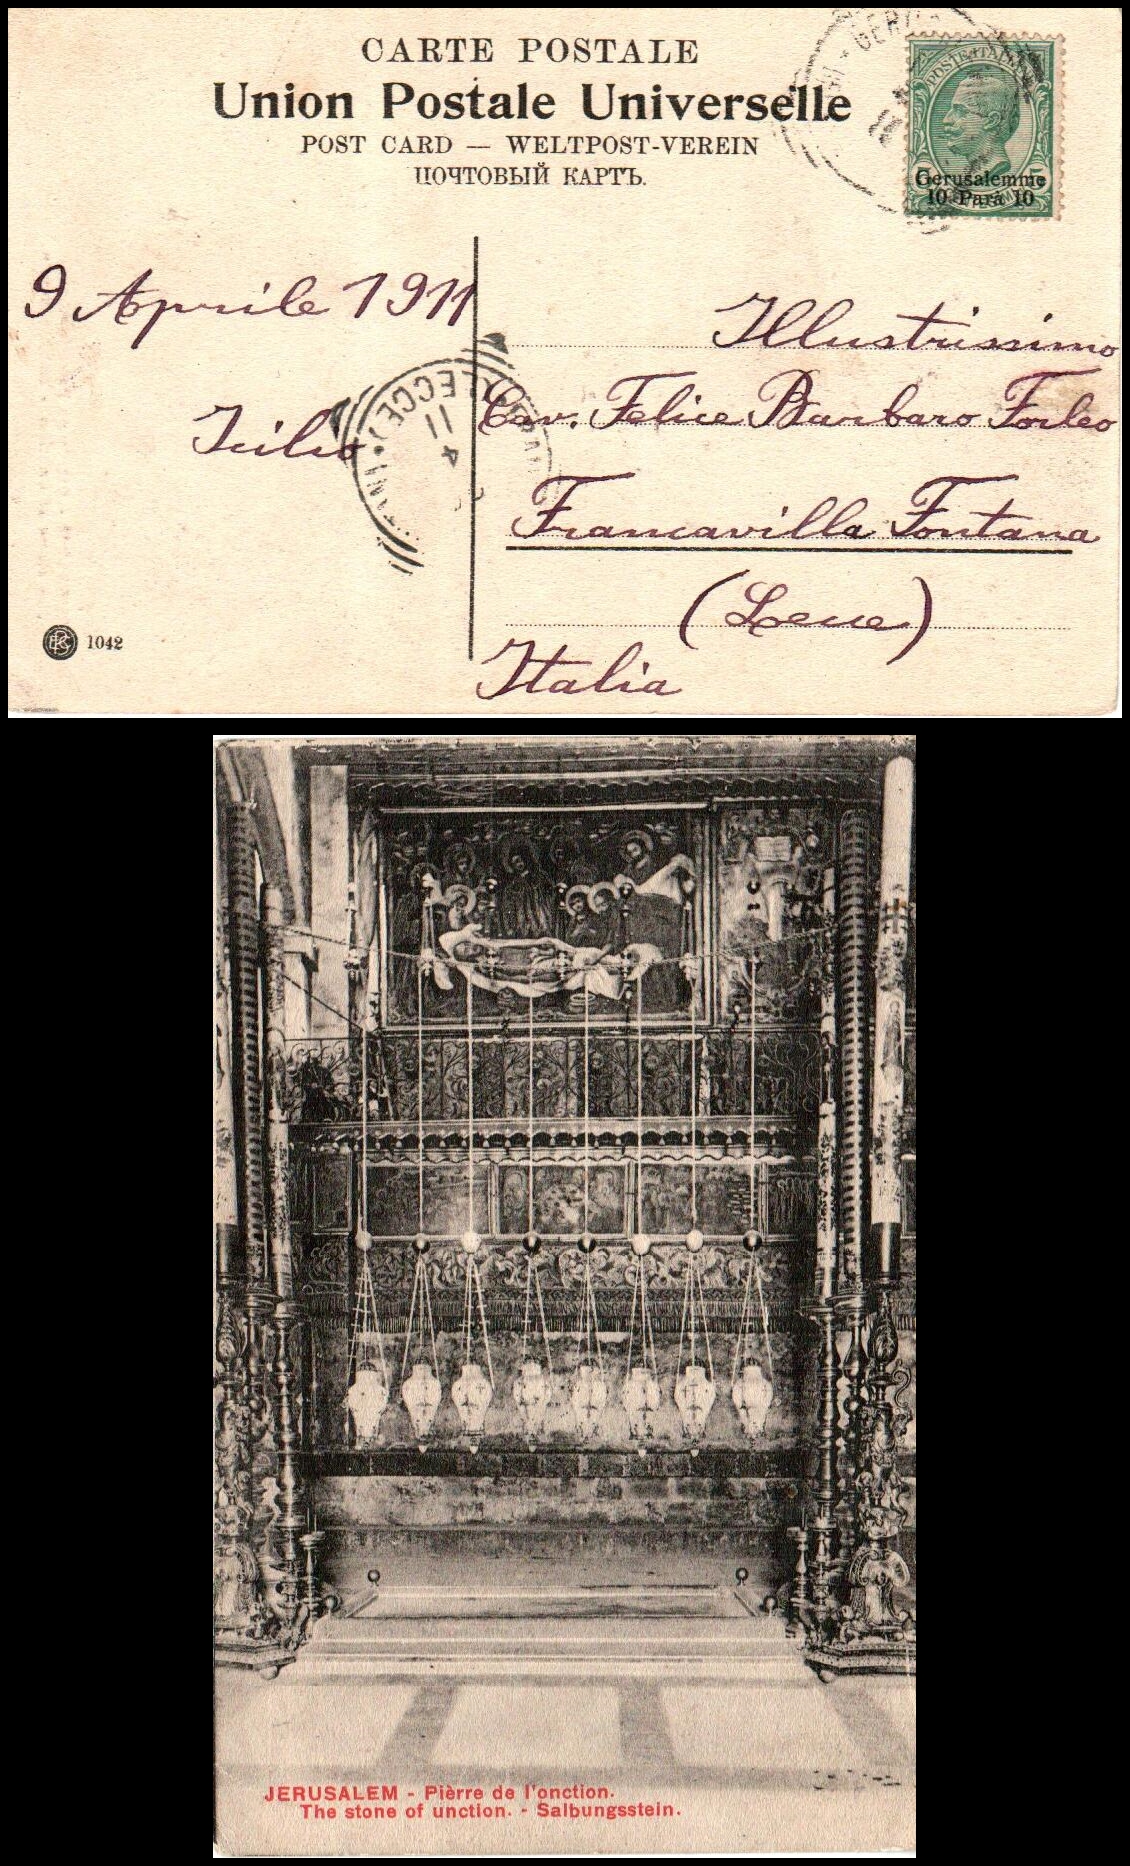 CARTE POSTALE
Union Postale Universelle
POST CARD — WELTPOST-VEREIN
ПОЧТОВЫЙ КАРТЪ.
POSTE ITALIANE
Gerusalemme
10 Parà 10
9 Aprile 1911
Icilio
Illustrissimo
Cav. Felice Barbaro Forleo
Francavilla Fontana
(Lecce)
Italia
(LECCE)
11 4
1042
JERUSALEM - Pièrre de l'onction.
The stone of unction. - Salbungsstein.